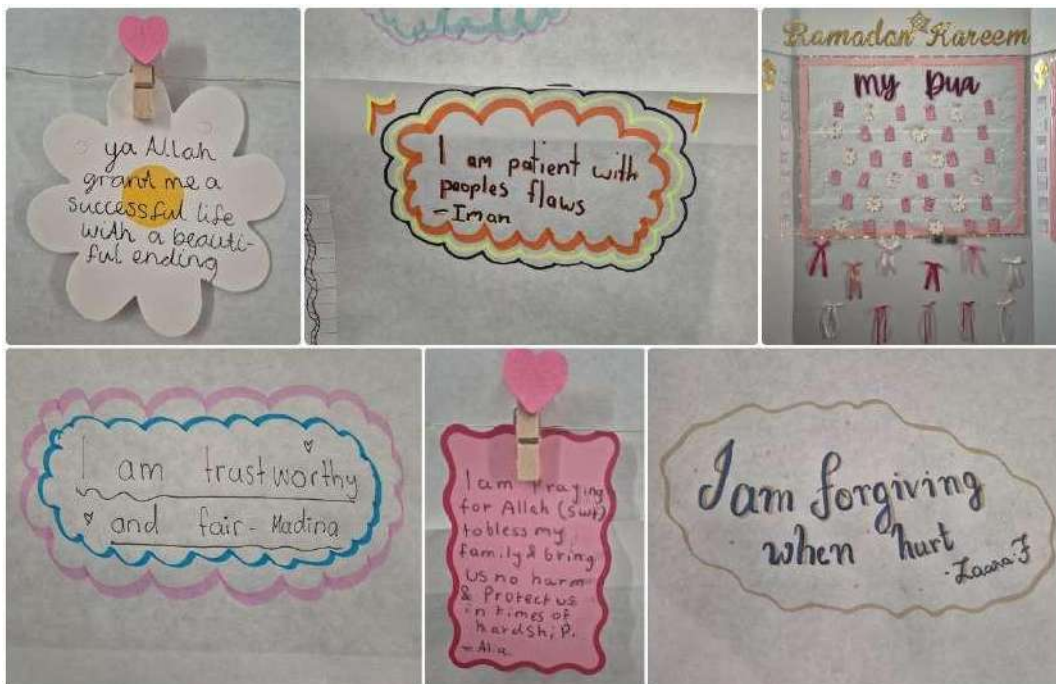 ya Allah
grant me a
successful life
with a beauti-
ful ending
I am patient with
peoples flaws
-Iman
Ramadan Kareem
my Dua
I am trustworthy
and fair - Madina
I am Praying
for Allah (swt)
to bless my
family & bring
us no harm
& Protect us
in times of
hardship.
- Alia
I am forgiving
when hurt
-Zaara.F